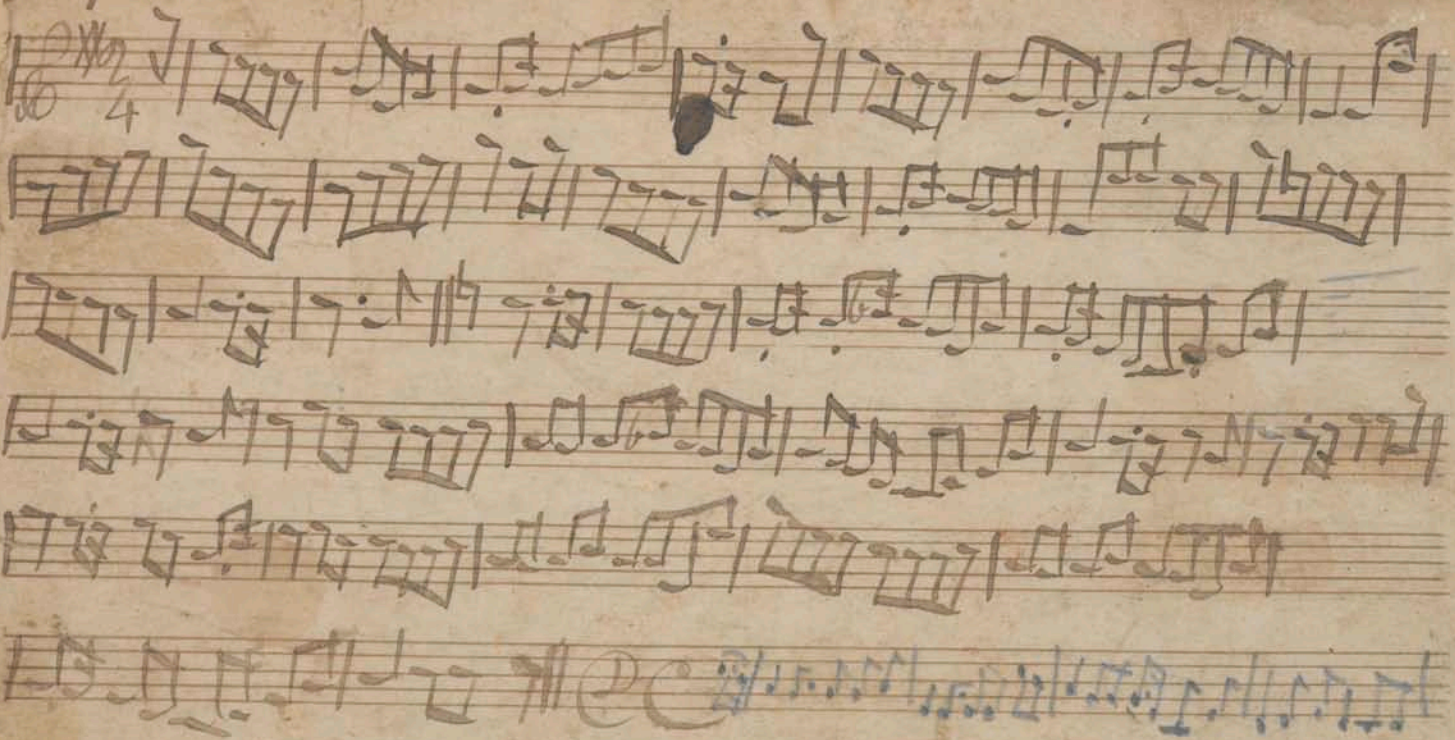 2
4
DC